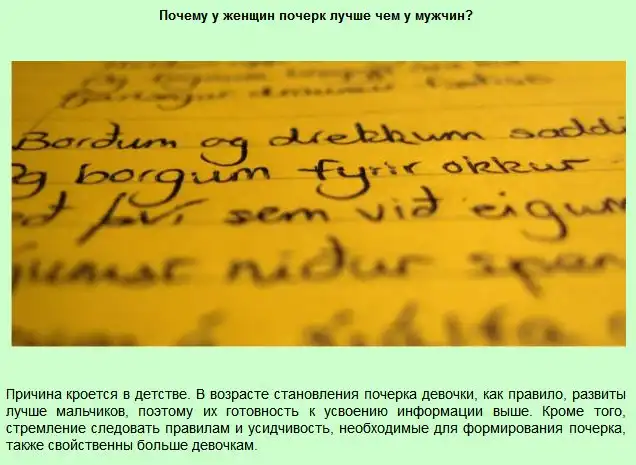 Почему у женщин почерк лучше чем у мужчин?
Borðum og drekkum saddi
Og borgum fyrir okkur
því sem við eigum
niður
Причина кроется в детстве. В возрасте становления почерка девочки, как правило, развиты
лучше мальчиков, поэтому их готовность к усвоению информации выше. Кроме того,
стремление следовать правилам и усидчивость, необходимые для формирования почерка,
также свойственны больше девочкам.